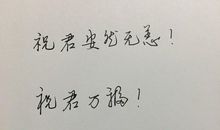 祝君安然无恙！
祝君万福！